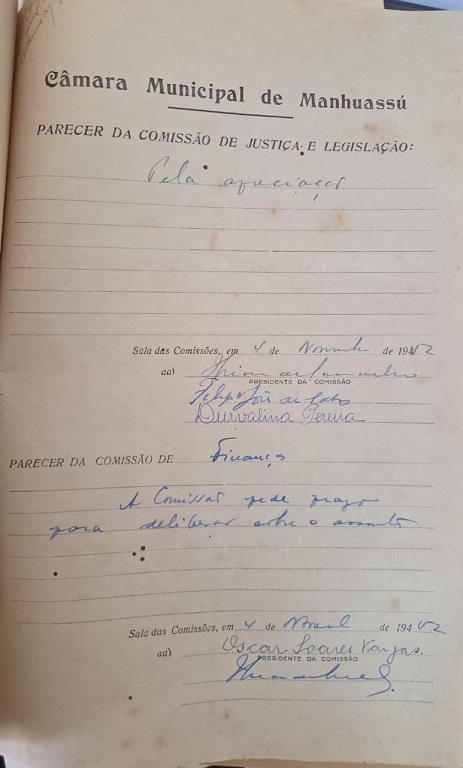 Câmara Municipal de Manhuassú
PARECER DA COMISSÃO DE JUSTIÇA E LEGISLAÇÃO:
Pela apreciação
Sala das Comissões, em 4 de Novembro de 1952
aa)
PRESIDENTE DA COMISSÃO
Felipe José de
Durvalina Pereira
PARECER DA COMISSÃO DE Finanças
A Comissão pede prazo
para deliberar sobre o assunto
Sala das Comissões, em 4 de de 1952
aa) Oscar Soares Vargas.
PRESIDENTE DA COMISSÃO